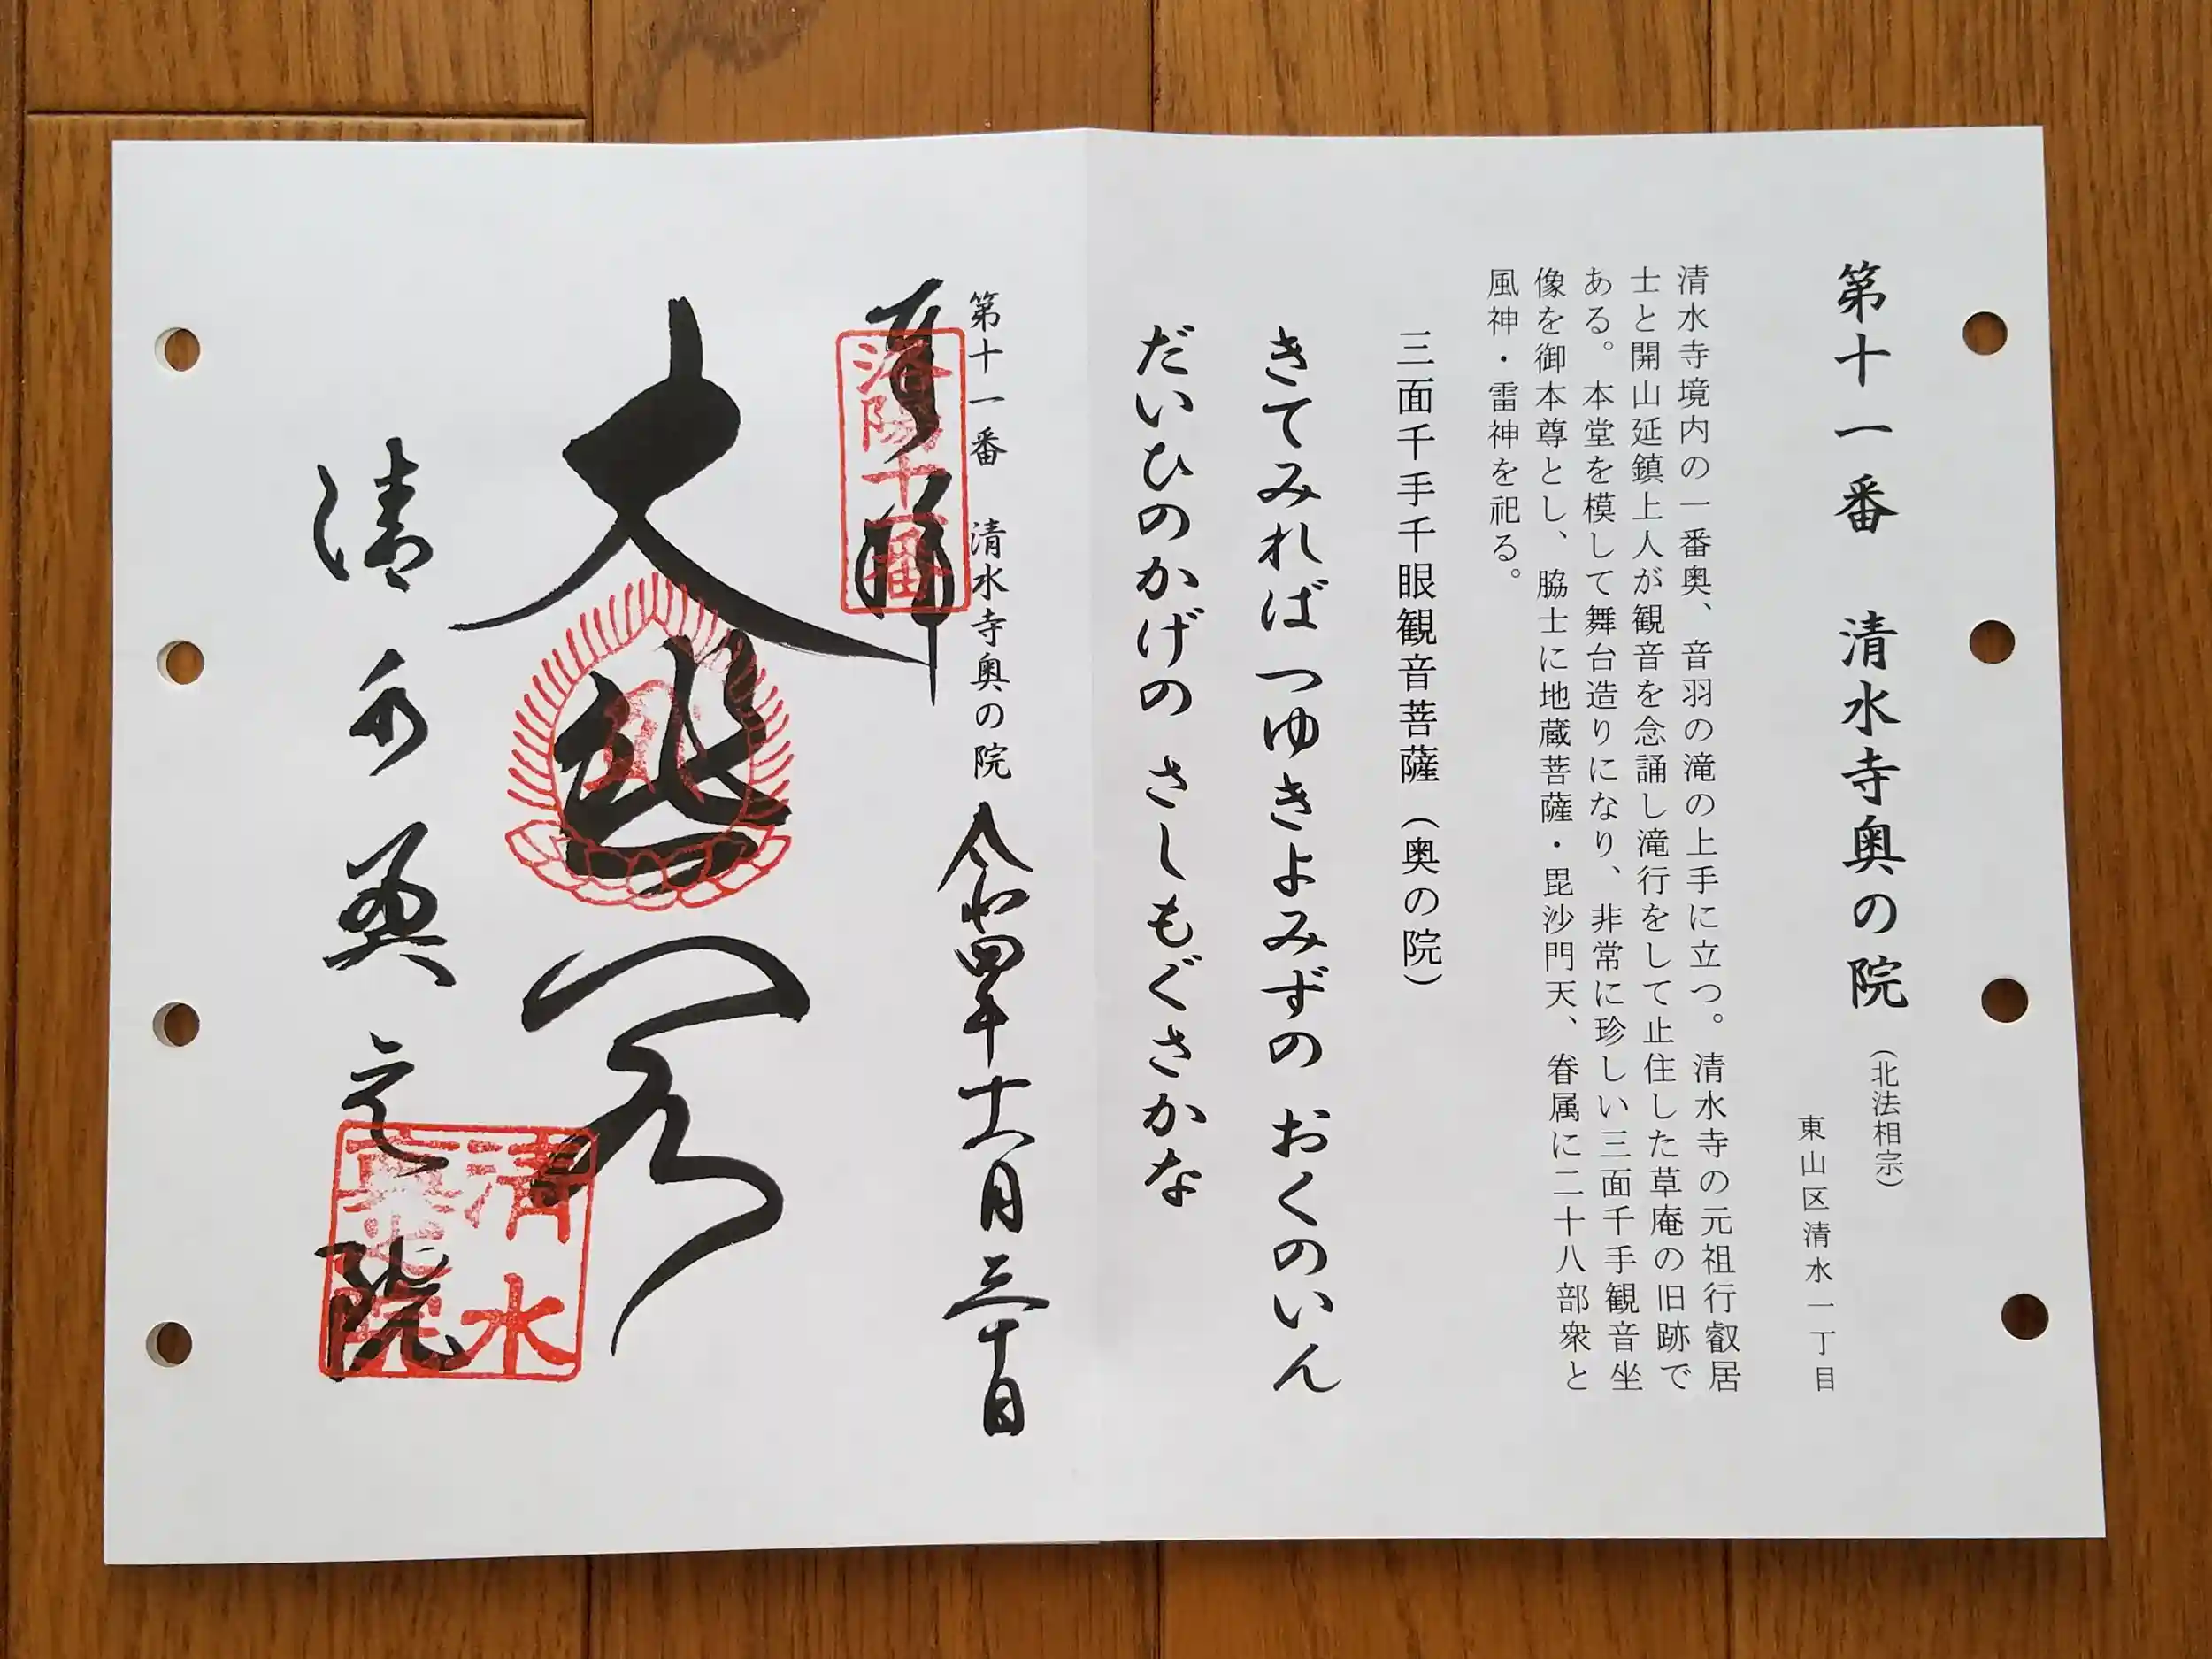 第十一番　清水寺奥の院（北法相宗）
東山区清水一丁目
清水寺境内の一番奥、音羽の滝の上手に立つ。清水寺の元祖行叡居
士と開山延鎮上人が観音を念誦し滝行をして止住した草庵の旧跡で
ある。本堂を模して舞台造りになり、非常に珍しい三面千手観音坐
像を御本尊とし、脇士に地蔵菩薩・毘沙門天、眷属に二十八部衆と
風神・雷神を祀る。
三面千手千眼観音菩薩（奥の院）
きてみれば つゆきよみずの おくのいん
だいひのかげの さしもぐさかな
第十一番　清水寺奥の院
令和四年十一月三十日
奉拝
洛陽十一番
大悲閣
清水奥之院
清水
奥之院